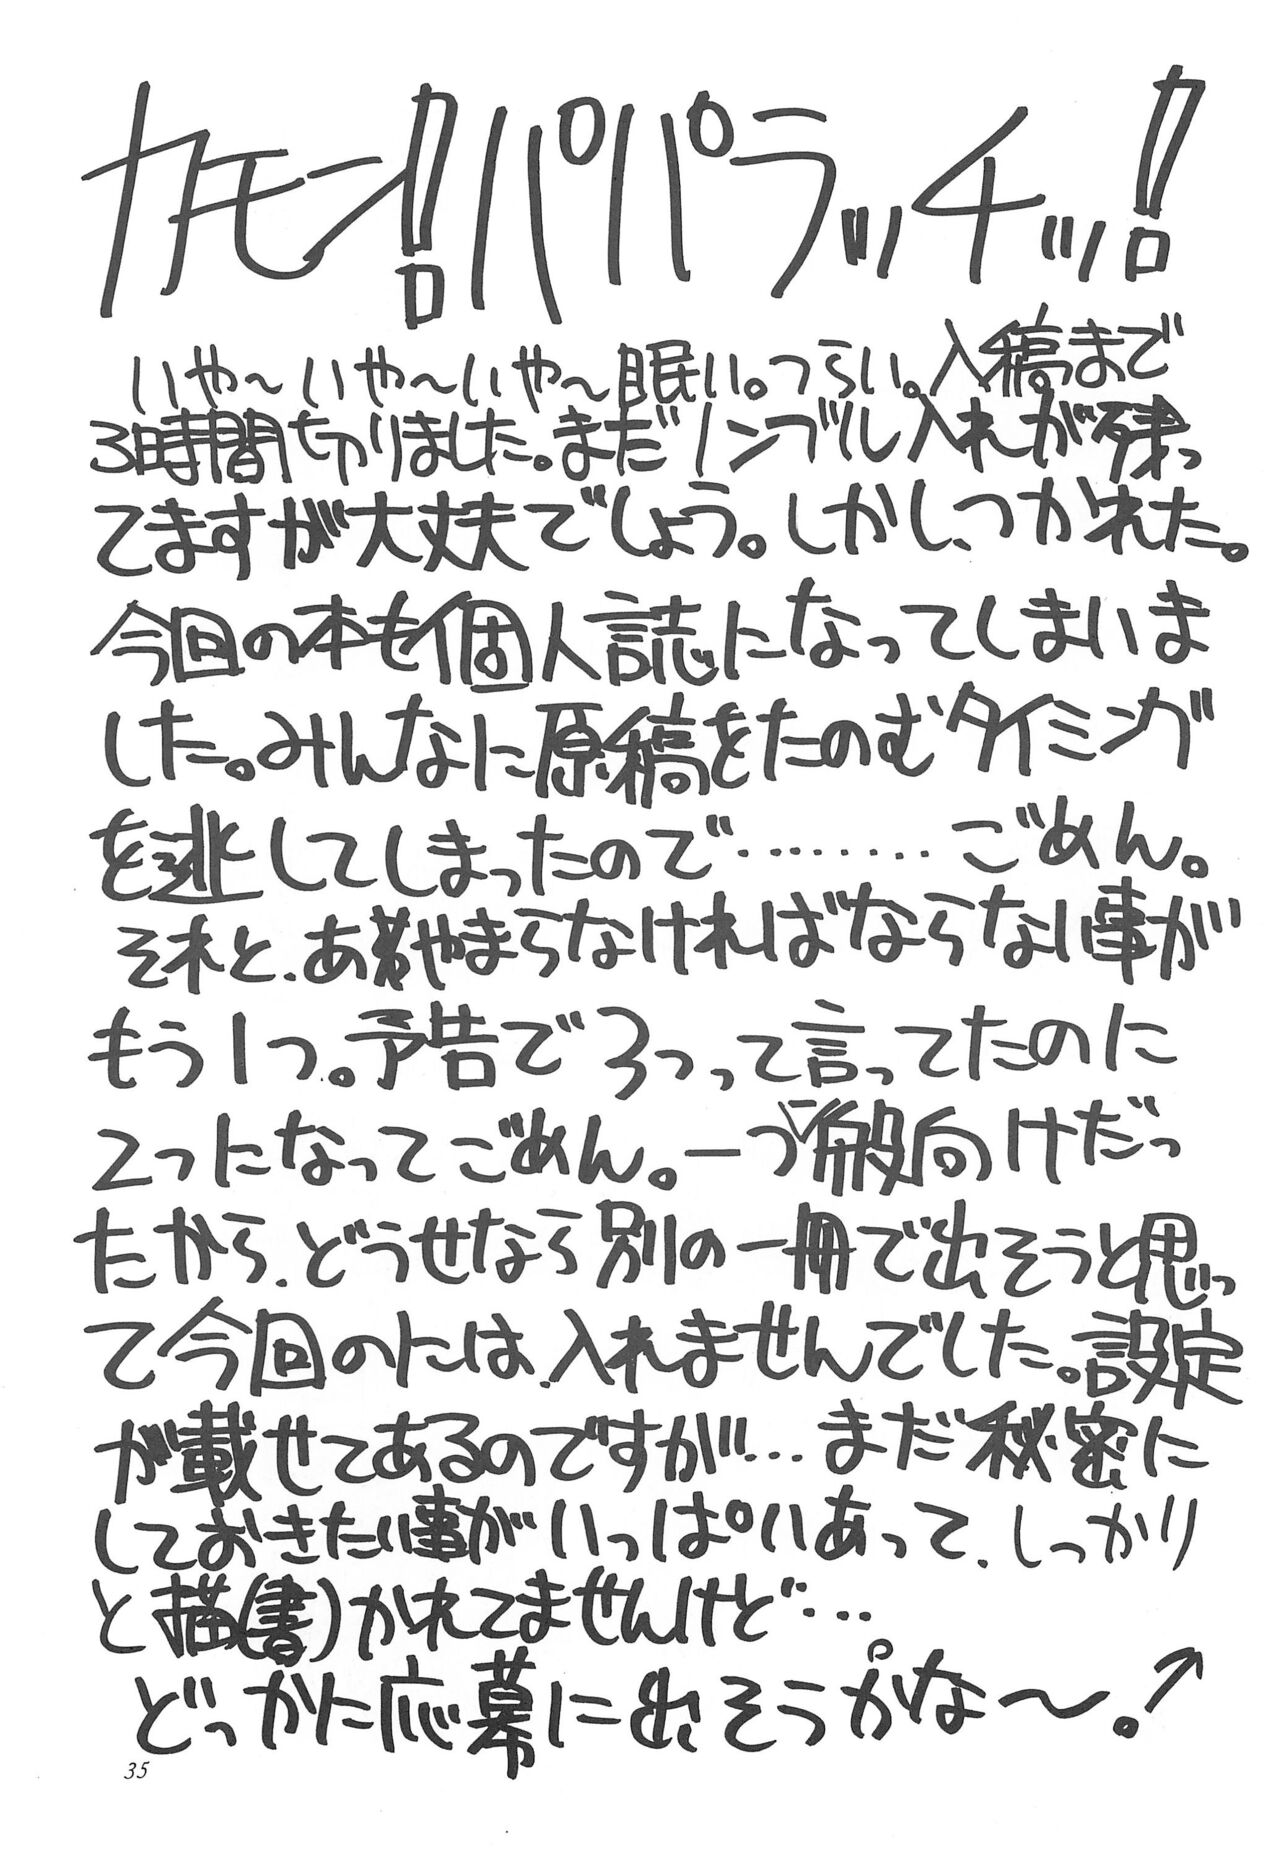 カモン!!パパラッチッ!!
いや〜いや〜いや〜眠い。つらい。入稿まで
3時間切りました。まだノンブル入れが残っ
てますが大丈夫でしょう。しかし、つかれた。
今回の本も個人誌になってしまいま
した。みんなに原稿をたのむタイミング
を逃してしまったので………ごめん。
それと、あやまらなければならない事が
もう1つ。予告で3つって言ってたのに
2つになってごめん。一つが一般向けだっ
たから、どうせなら別の一冊で出そうと思っ
て今回のには、入れませんでした。設定
が載せてあるのですが…まだ秘密に
しておきたい事がいっぱいあって、しっかり
と描(書)かれてませんけど…
どっかに応募に出そうかな〜。↗
35